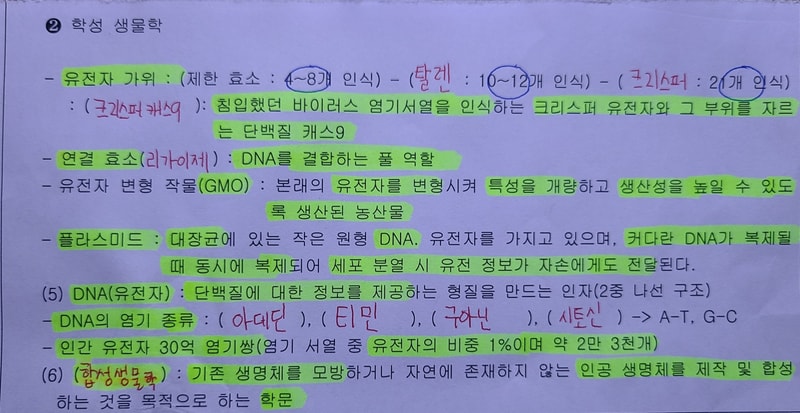 ❷ 학성 생물학
- 유전자 가위 : (제한 효소 : 4~8개 인식) - (탈렌 : 10~12개 인식) - (크리스퍼 : 21개 인식)
: (크리스퍼 캐스9): 침입했던 바이러스 염기서열을 인식하는 크리스퍼 유전자와 그 부위를 자르
는 단백질 캐스9
- 연결 효소(리가이제) : DNA를 결합하는 풀 역할
- 유전자 변형 작물(GMO) : 본래의 유전자를 변형시켜 특성을 개량하고 생산성을 높일 수 있도
록 생산된 농산물
- 플라스미드 : 대장균에 있는 작은 원형 DNA. 유전자를 가지고 있으며, 커다란 DNA가 복제될
때 동시에 복제되어 세포 분열 시 유전 정보가 자손에게도 전달된다.
(5) DNA(유전자) : 단백질에 대한 정보를 제공하는 형질을 만드는 인자(2중 나선 구조)
- DNA의 염기 종류 : (아데닌), (티민), (구아닌), (시토신) -> A-T, G-C
- 인간 유전자 30억 염기쌍(염기 서열 중 유전자의 비중 1%이며 약 2만 3천개)
(6) (합성생물학) : 기존 생명체를 모방하거나 자연에 존재하지 않는 인공 생명체를 제작 및 합성
하는 것을 목적으로 하는 학문